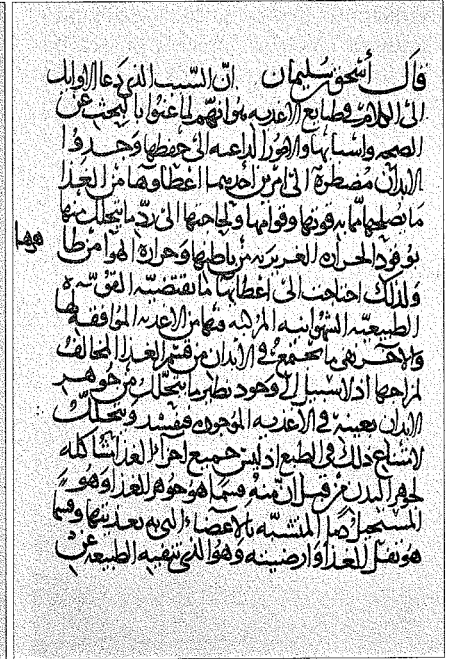 قال أسحق بن سليمان انّ السبب الذي دعا الاوايل
الى الكلام في طبايع الاغذيه هو انهم لما عنوا بالبحث عن
الصحه واسبابها والامور الداعيه الى حفظها وجدوا
الابدان مضطرة الى امرين احدهما اعطاوها من الغذا
ما يصلحها مما به قوتها وقوامها ولحاجتها الى ردّ ما يتحلل منها
بوقود الحراره الغريزيه من باطنها وحرارة الهوا من ظا
هرها
ولذلك احتاجت الى اعطايها ما تقتضيه القوّه
الطبيعيّه الشهوانيه المركبه فيها من الاغذيه الموافقه لها
والاخر نفي ما يجتمع في الابدان من قسم الغذا المخالف
لمزاجها اذ لا سبيل الى وجود نظير ما يتحلّل من جوهر
الابدان بعينه في الاغذيه الموجوده فيفسد ويتحلّل
لامتناع ذلك في الطبع اذ ليس جميع اجزاء الغذا مشاكله
لجوهر البدن من قبل ان منه قسما هو جوهر للغذا وهو
المستحيل المتشبّه بالاعضاء التي به تغذيتها وقسما
هو ثفل للغذا وارضيته وهو الذي تنفيه الطبيعه عن